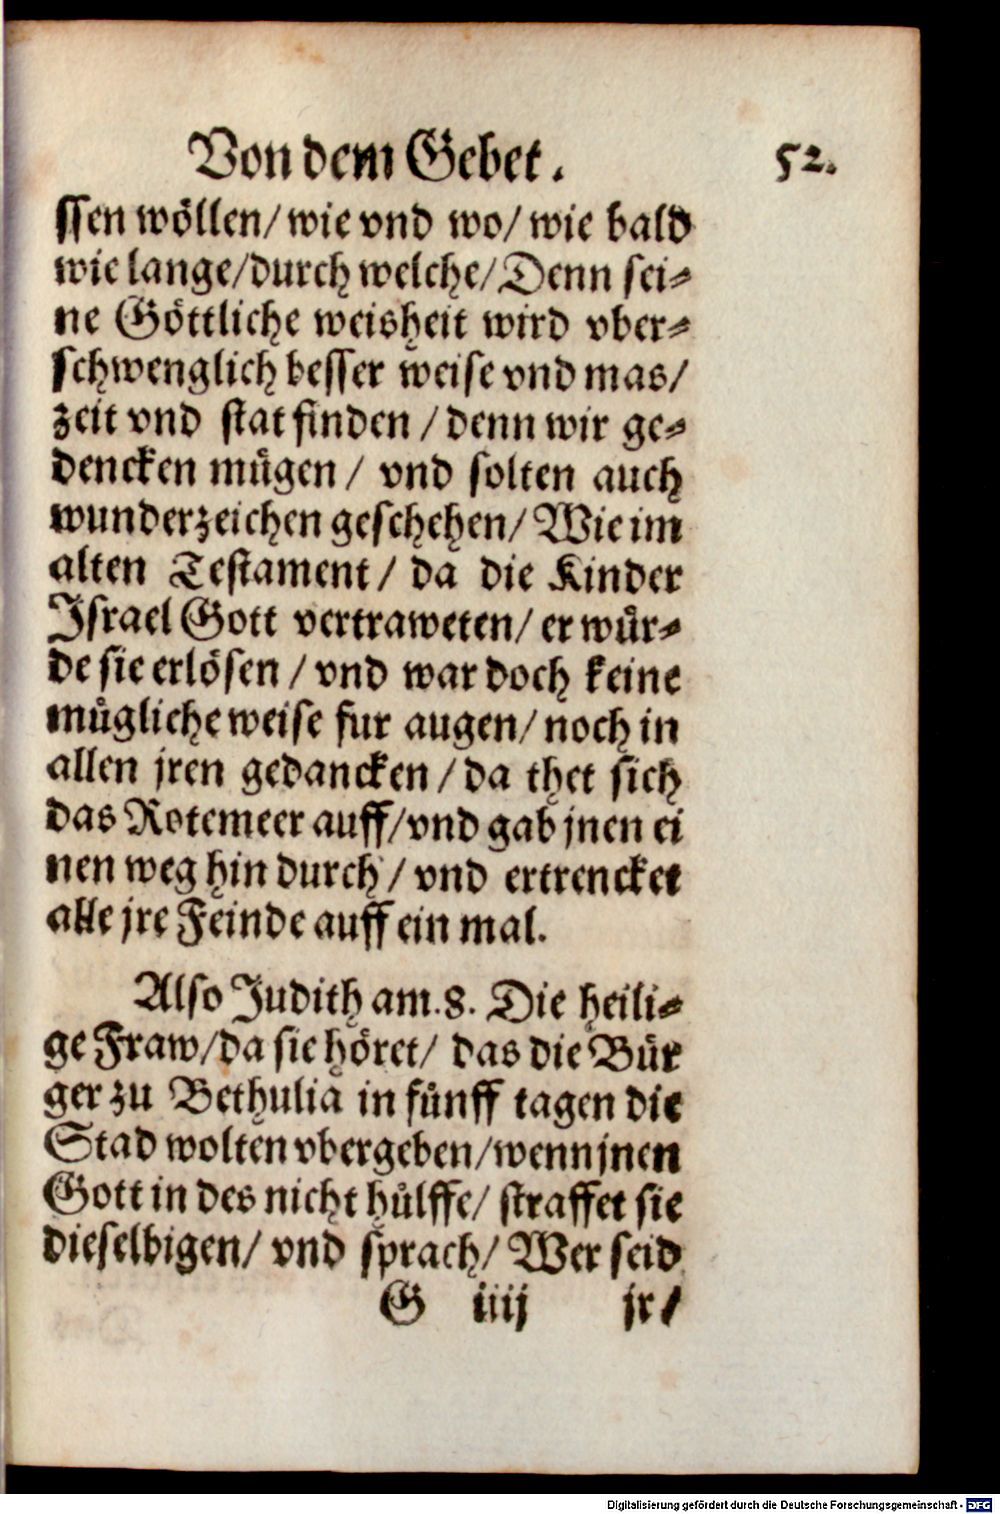 Von dem Gebet. 52.
ssen wöllen/ wie vnd wo/ wie bald
wie lange/durch welche/Denn sei⸗
ne Göttliche weisheit wird vber⸗
schwenglich besser weise vnd mas/
zeit vnd stat finden / denn wir ge⸗
dencken mügen / vnd solten auch
wunderzeichen geschehen/ Wie im
alten Testament / da die Kinder
Israel Gott vertraweten/ er wür⸗
de sie erlösen / vnd war doch keine
mügliche weise fur augen/ noch in
allen jren gedancken / da thet sich
das Rotemeer auff/vnd gab jnen ei
nen weg hin durch / vnd ertrencket
alle jre Feinde auff ein mal.
Also Judith am. 8. Die heili⸗
ge Fraw/da sie höret/ das die Bür
ger zu Bethulia in fünff tagen die
Stad wolten vbergeben/wenn jnen
Gott in des nicht hülffe/ straffet sie
dieselbigen/ vnd sprach/ Wer seid
G iiij jr/
Digitalisierung gefördert durch die Deutsche Forschungsgemeinschaft - DFG